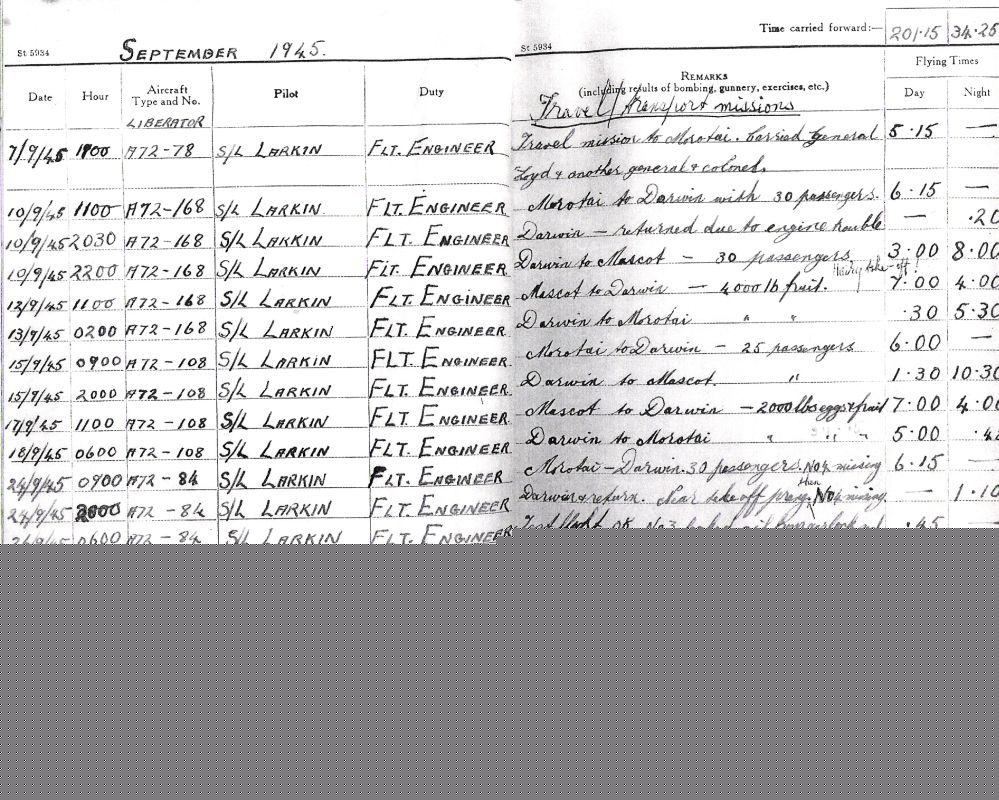 Time carried forward:— 201.15 34.25
St 5934 St 5934
SEPTEMBER 1945.
Flying Times
Date Hour Aircraft Type and No. Pilot Duty REMARKS (including results of bombing, gunnery, exercises, etc.) Day Night
LIBERATOR Travel/transport missions
7/9/45 1100 A72-78 S/L LARKIN FLT. ENGINEER Travel mission to Morotai. Carried General 5.15 —
Loyd & another general & colonel.
10/9/45 1100 A72-168 S/L LARKIN FLT. ENGINEER Morotai to Darwin with 30 passengers. 6.15 —
10/9/45 2030 A72-168 S/L LARKIN FLT. ENGINEER Darwin — returned due to engine trouble — .20
10/9/45 2200 A72-168 S/L LARKIN FLT. ENGINEER Darwin to Mascot — 30 passengers. 3.00 8.00
Hairy take-off!
12/9/45 1100 A72-168 S/L LARKIN FLT. ENGINEER Mascot to Darwin — 4000 lb fruit. 7.00 4.00
13/9/45 0200 A72-168 S/L LARKIN FLT. ENGINEER Darwin to Morotai " " .30 5.30
15/9/45 0900 A72-108 S/L LARKIN FLT. ENGINEER Morotai to Darwin — 25 passengers 6.00 —
15/9/45 2000 A72-108 S/L LARKIN FLT. ENGINEER Darwin to Mascot. " 1.30 10.30
17/9/45 1100 A72-108 S/L LARKIN FLT. ENGINEER Mascot to Darwin — 2000 lbs eggs & fruit 7.00 4.00
18/9/45 0600 A72-108 S/L LARKIN FLT. ENGINEER Darwin to Morotai " " " 5.00
24/9/45 0900 A72-84 S/L LARKIN FLT. ENGINEER Morotai — Darwin. 30 passengers. No4 missing 6.15 —
24/9/45 2000 A72-84 S/L LARKIN FLT. ENGINEER Darwin & return. Near take off then No4 missing. — 1.10
0600 A72-84 S/L LARKIN FLT. ENGINEER Test flight OK. No3 .45